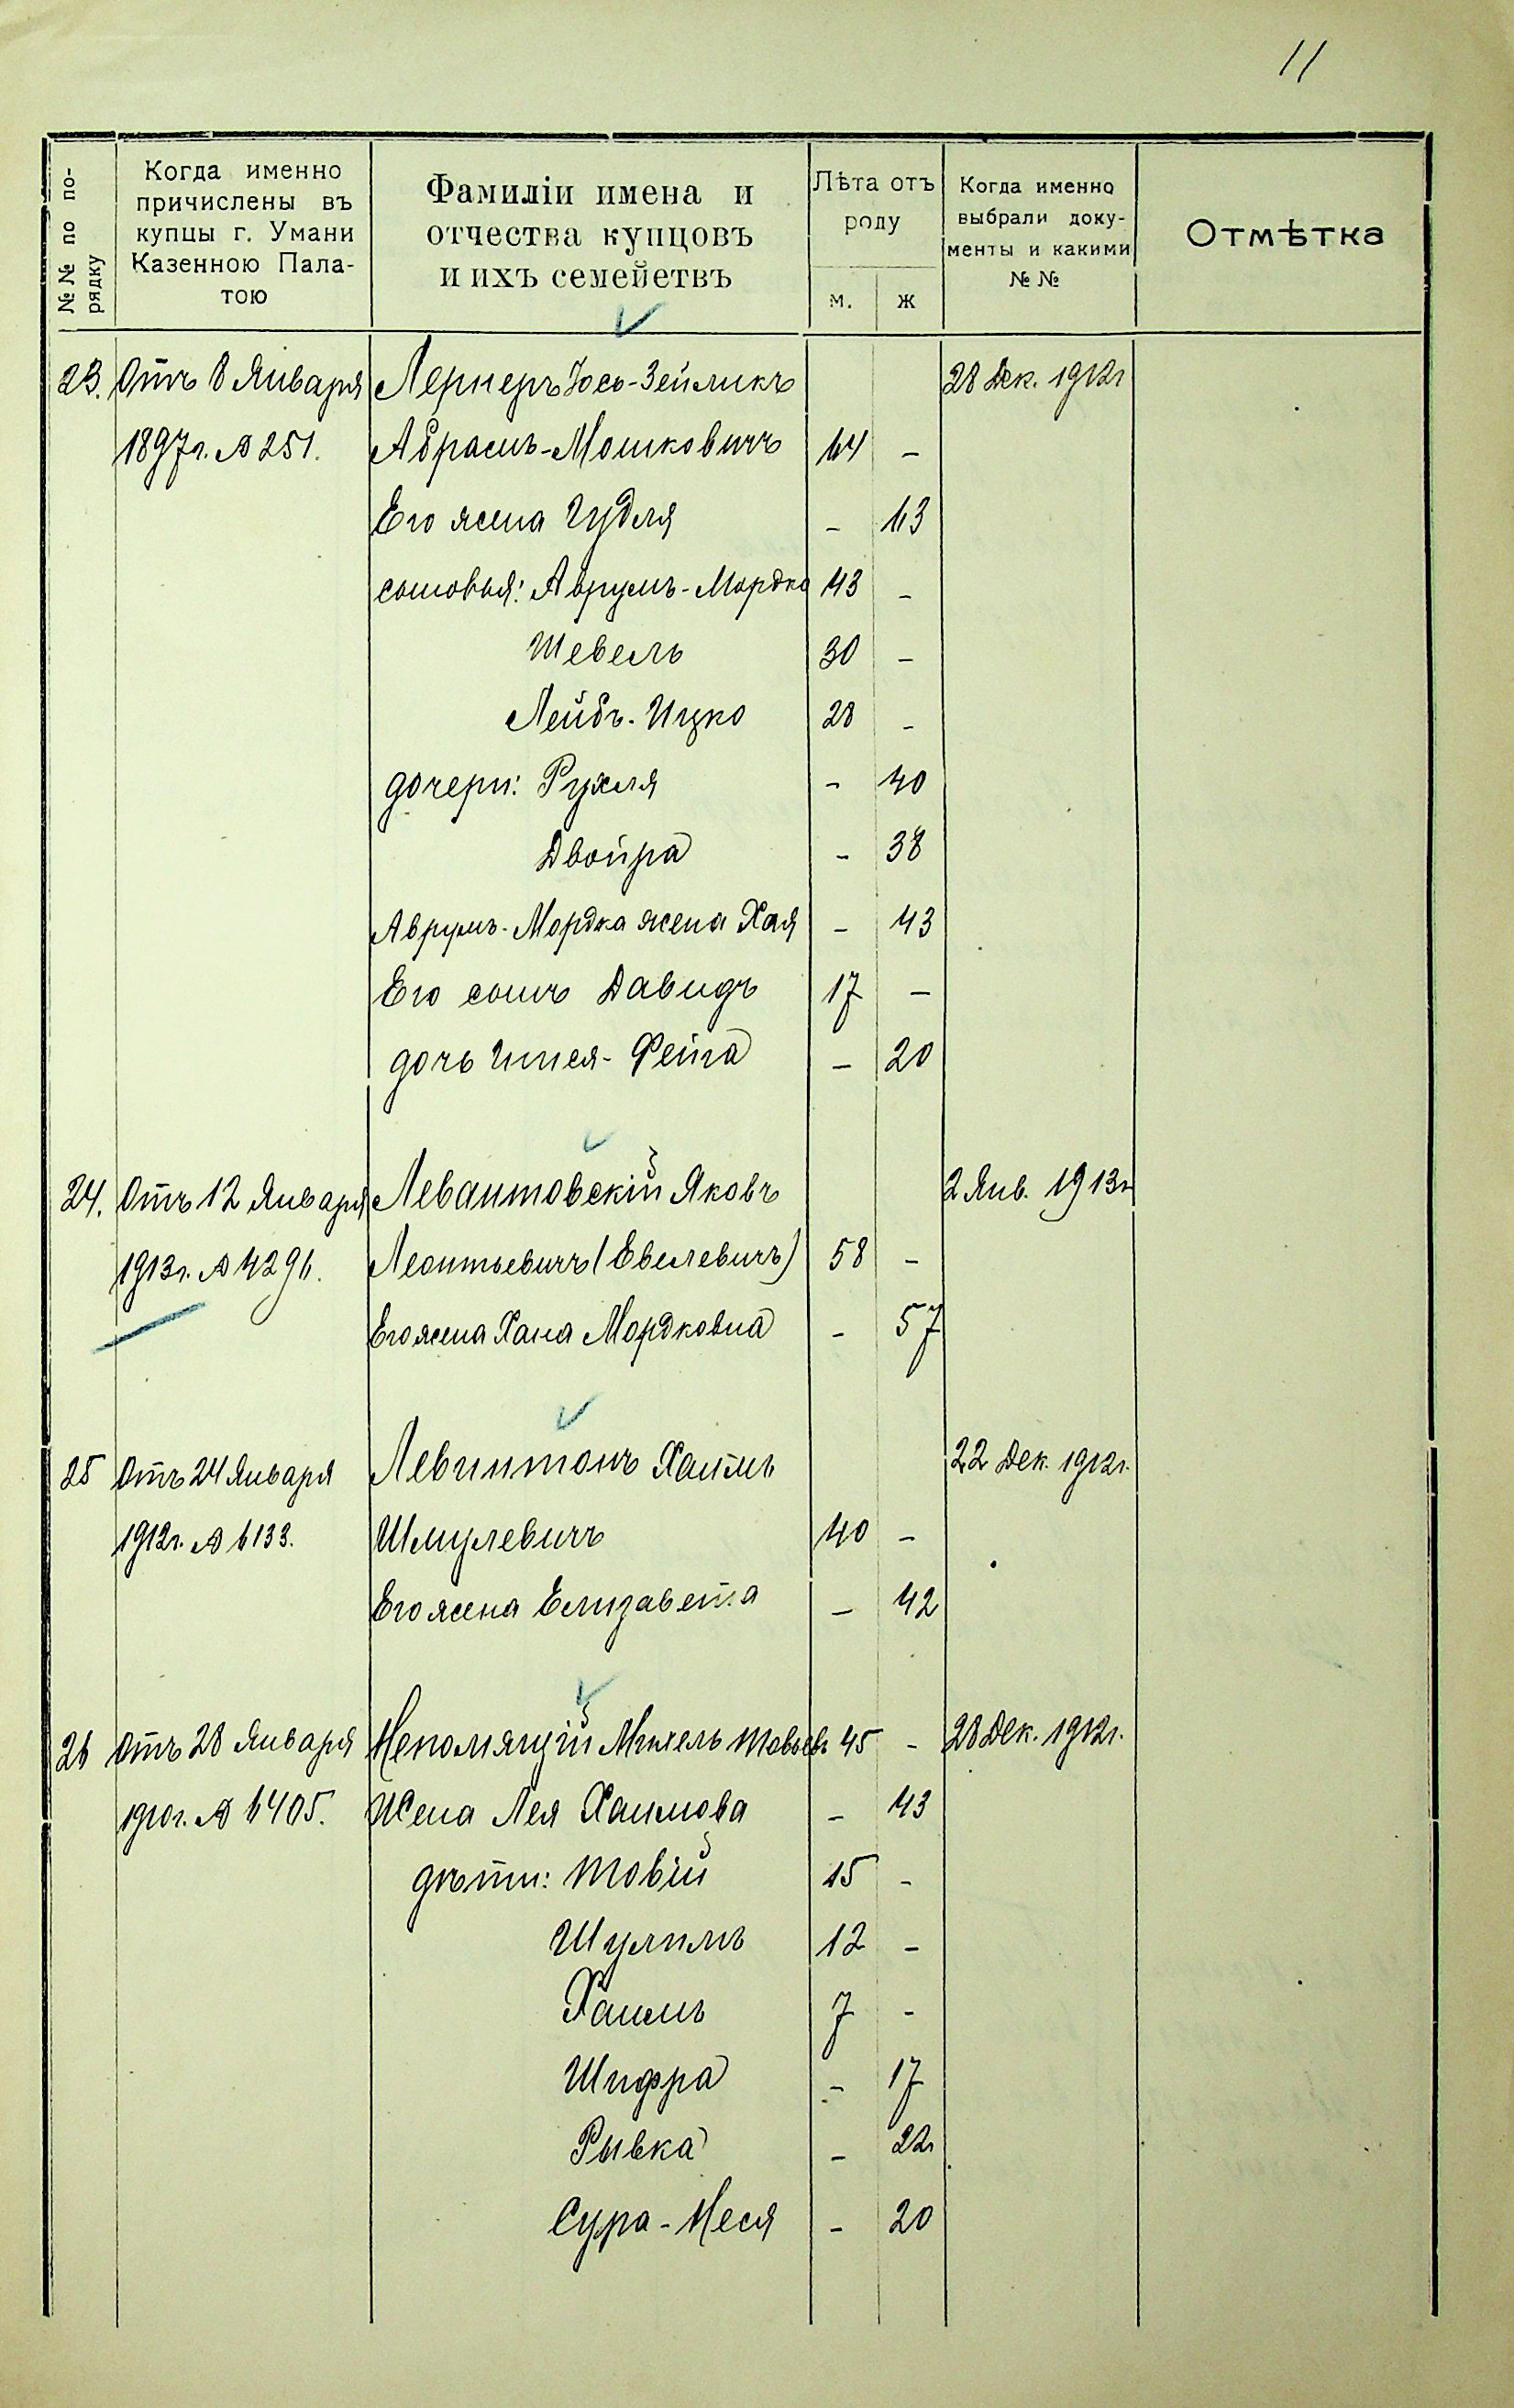 11
№№ по по-
рядку
Когда именно
причислены въ
купцы г. Умани
Казенною Пала-
тою
Фамиліи имена и
отчества купцовъ
и ихъ семействъ
Лѣта отъ
роду
м. ж
Когда именно
выбрали доку-
менты и какими
№ №
Отмѣтка
23. Отъ 8 Января Лернеръ Іось-Зейликъ 28 Дек. 1912г
1897г. № 251. Абрамъ-Мошковичъ 64 -
Его жена Гудля - 63
сыновья: Аврумъ-Мордко 43 -
Шевель 30 -
Лейбъ-Ицко 28 -
дочери: Рухля - 40
Двойра - 38
Аврумъ-Мордка жена Хая - 43
Его сынъ Давидъ 17 -
дочь Фейга - 20
24. Отъ 12 Января Левантовскій Яковъ 2 Янв. 1913г
1913г. № 4296. Леонтьевичъ (Евелевичъ) 58 -
Его жена Хана Мордковна - 57
25 Отъ 24 Января Левинтонъ Хаимъ 22 Дек. 1912г.
1912г. № 6133. Шмулевичъ 40 -
Его жена Елизавета - 42
26 Отъ 28 Января Непомящій Михель Товьевъ 45 - 28 Дек. 1912г.
1910г. № 6405. Жена Лея Хаимова - 43
дѣти: Товій 15 -
Шулимъ 12 -
Хаимъ 7 -
Шифра - 17
Рывка - 22
Сура-Неся - 20